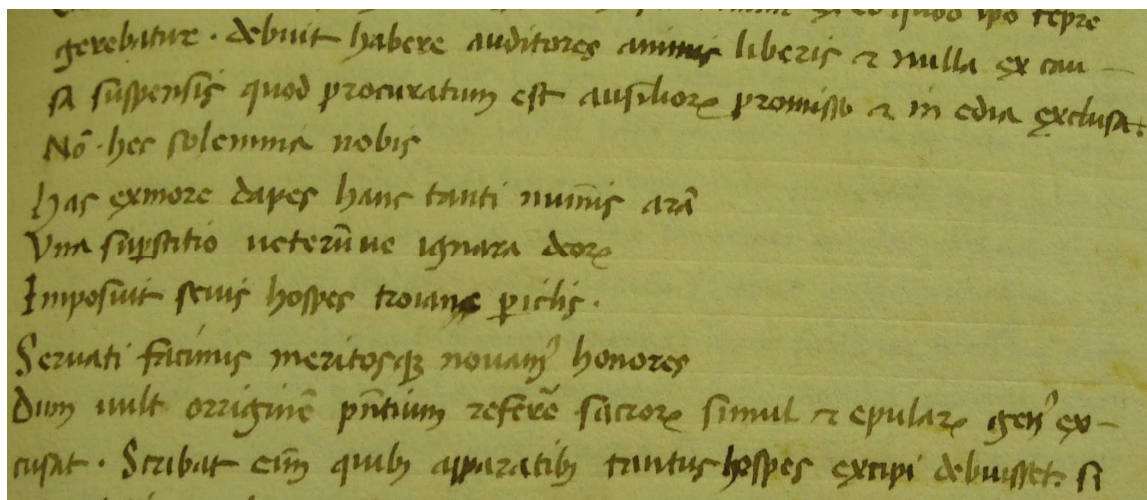 ex eo quod ipo tepre
gerebatur . debuit habere auditores animis liberis & nulla ex cau
sa suspensis quod procuratum est ausiliorꝝ promisso & in edia exclusa.
Nō . hec solemnia nobis
Has exmore dapes hanc tanti numīs arā
Vna suꝑstitio ueterūue ignara deorꝝ
Imposuit seuis hospes troiane ꝑiclis .
Seruati facimus meritosqꝫ nouamꝰ honores
Dum uult orriginē pn̄tium referē sacrorꝝ simul & epularꝝ genꝰ ex
cusat . Scribat eīm quibꝫ apparatibꝫ tantus hospes excipi debuisset: si